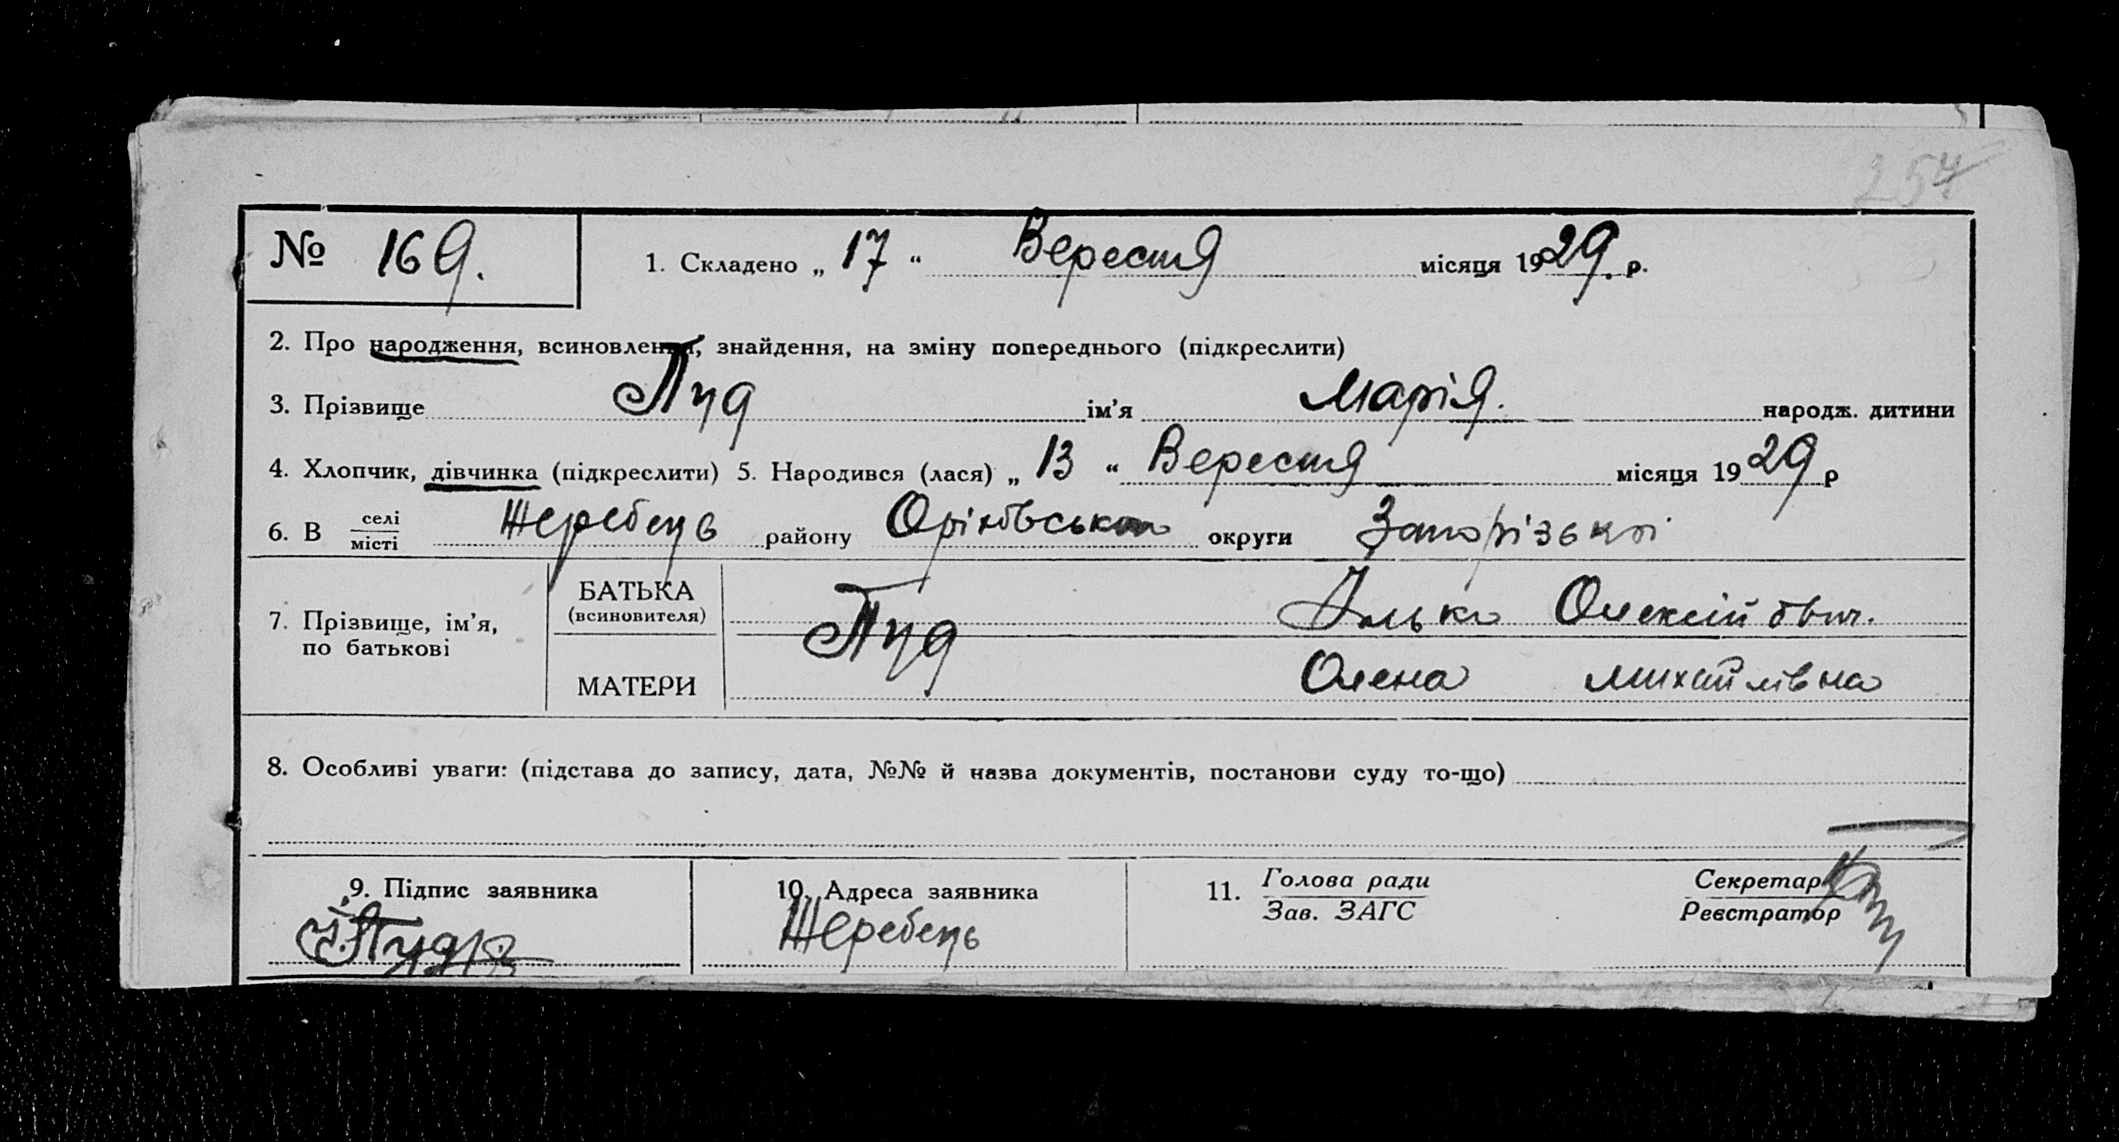 257
№ 169.
1. Складено „ 17 “ Вересня місяця 1929. р.
2. Про народження, всиновлення, знайдення, на зміну попереднього (підкреслити)
3. Прізвище Пуд ім'я Марія. народж. дитини
4. Хлопчик, дівчинка (підкреслити) 5. Народився (лася) „ 13 “ Вересня місяця 1929 р
6. В селі Жеребець району Оріхівськ округи Запорізькі
місті
7. Прізвище, ім'я, по батькові
БАТЬКА Пуд Ілько Олексійович.
(всиновителя)
МАТЕРИ Олена Михайлівна
8. Особливі уваги: (підстава до запису, дата, №№ й назва документів, постанови суду то-що)
9. Підпис заявника
10. Адреса заявника
Жеребець
11. Голова ради
Зав. ЗАГС
Секретар
Реєстратор